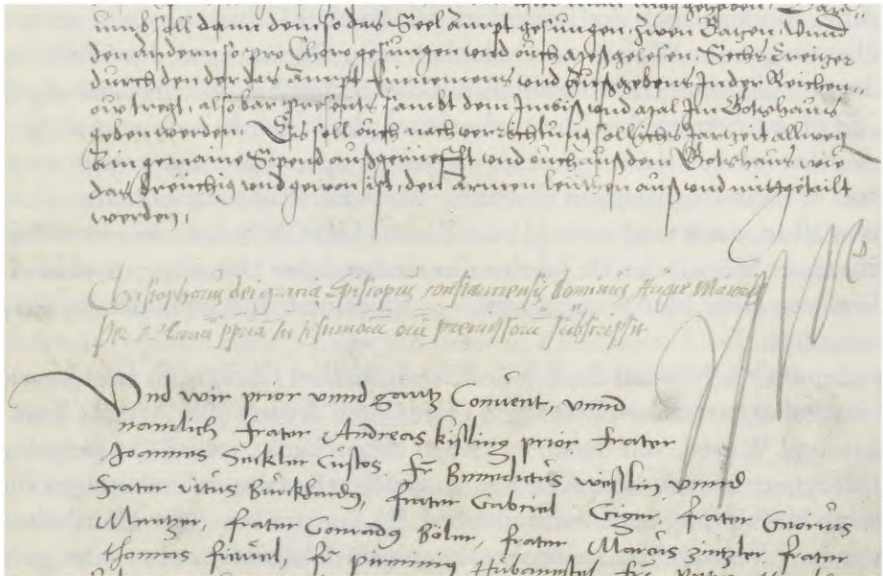 unnd soll dann dem so das Seel Ampt gesungen, zwen Batzen, Unnd
den andern so pro Choro gesungen und ouch gelesen, Sechs Creutzer
durch den der das Ampt Innemens und Ußgebens In der Reichen„
ow tregt, also bar presents sambt dem Imbiß und mal Im Gotshaus
geben werden. Es soll ouch nach verrichtung sollichs Jartzeit allweg
Ain gemaine Spend ußgerüefft und ouch auß dem Gotshaus, wie
das breüchig und gewon ist, den armen leüthen auß und mittgetailt
werden,
Christophorus dei gracia Episcopus constantiensis dominus Augie Maioris
manu ppria in testimoniū oīm premissorū subscripsit
Und wir prior unnd gantz Convent, unnd
namlich frater Andreas kißling prior frater
Joannes Custos, fr Benedictus weßlin unnd
frater vitus Burckhardg, frater Gabriel Giger frater Georius
Mentzer, frater Conradg Böler, frater Marcus zintzler frater
thomas, fr pirminus